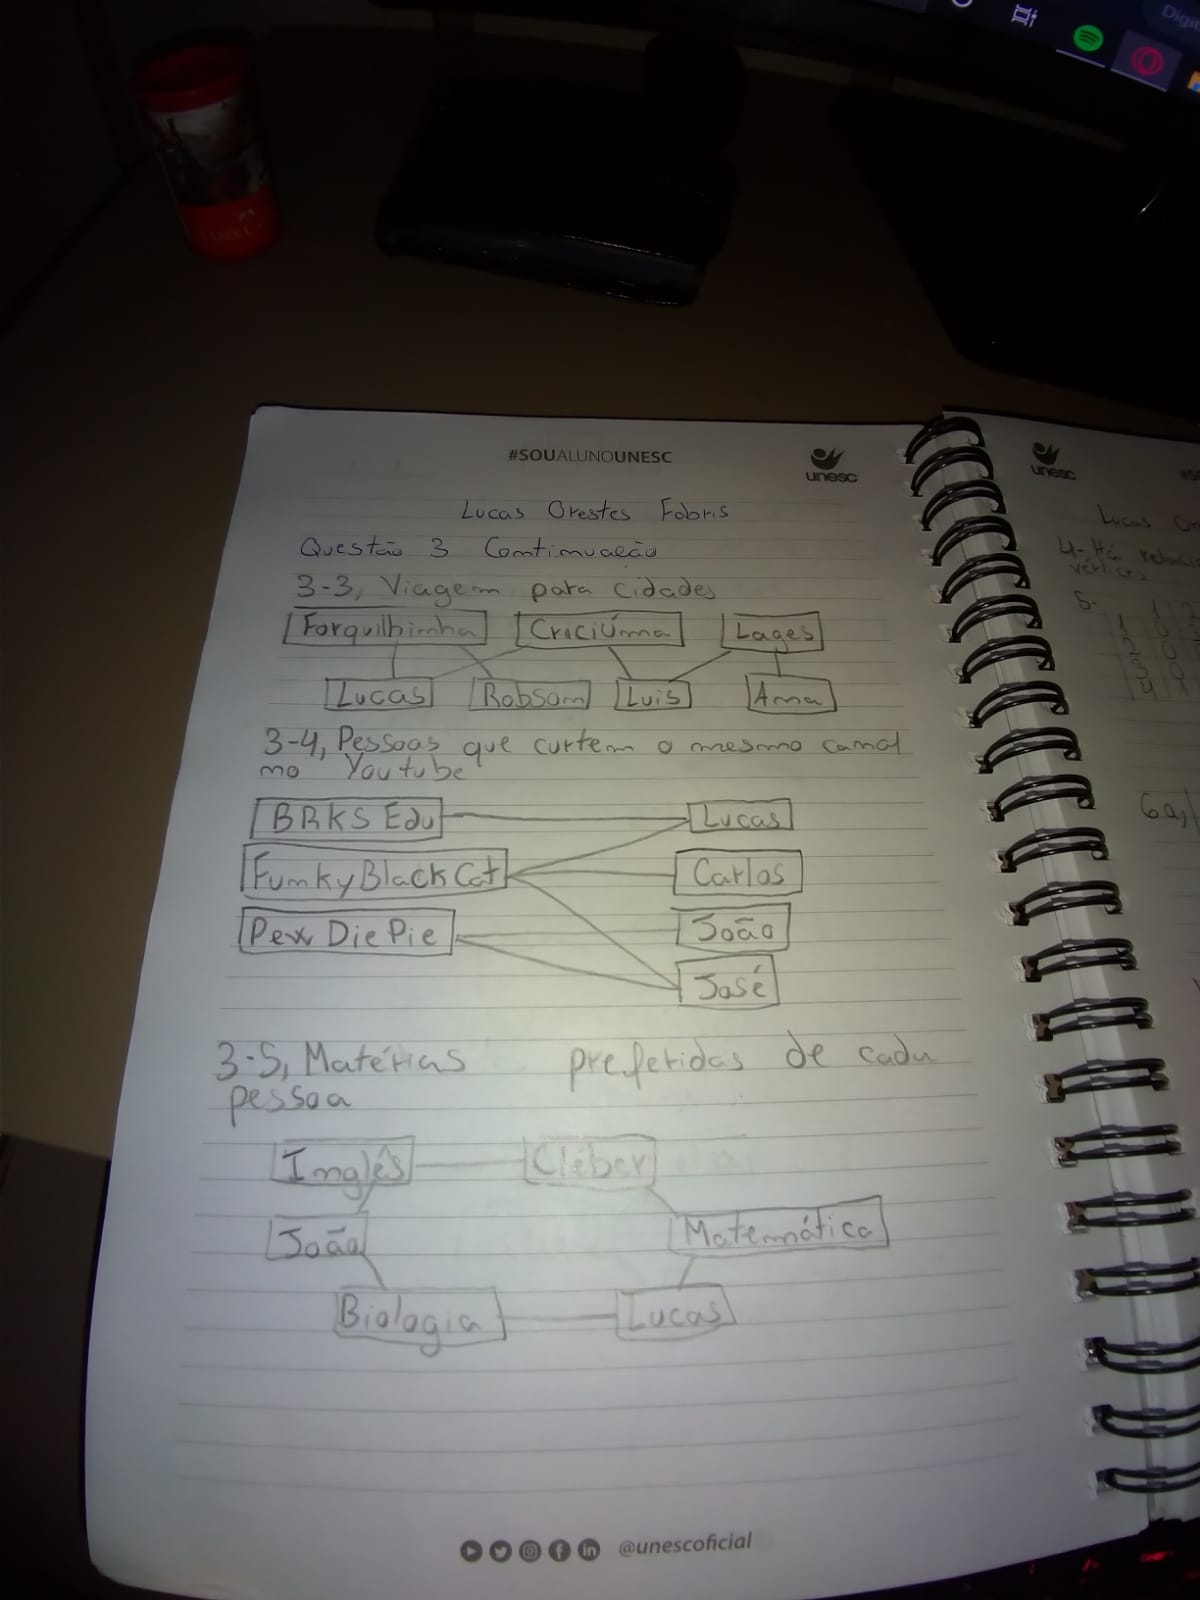 Digi
#SOUALUNOUNESC
unesc
Lucas Orestes Fabris
Questão 3 Continuação
3-3, Viagem para cidades
Forquilhinha Criciúma Lages
Lucas Robson Luis Ana
3-4, Pessoas que curtem o mesmo canal
no Youtube
BRKS Edu Lucas
FunkyBlackCat Carlos
PewDiePie João
José
3-5, Matérias preferidas de cada
pessoa
Inglês Cléber
João Matemática
Biologia Lucas
@unescoficial
unesc
Lucas
4-Há
vértices
5-
1
2
3
4
6a,